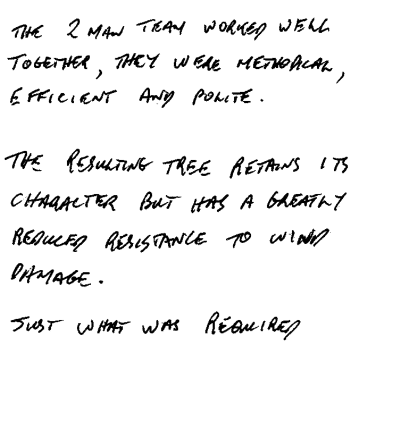 THE 2 MAN TEAM WORKED WELL
TOGETHER, THEY WERE METHODICAL,
EFFICIENT AND POLITE.
THE RESULTING TREE RETAINS ITS
CHARACTER BUT HAS A GREATLY
REDUCED RESISTANCE TO WIND
DAMAGE.
JUST WHAT WAS REQUIRED